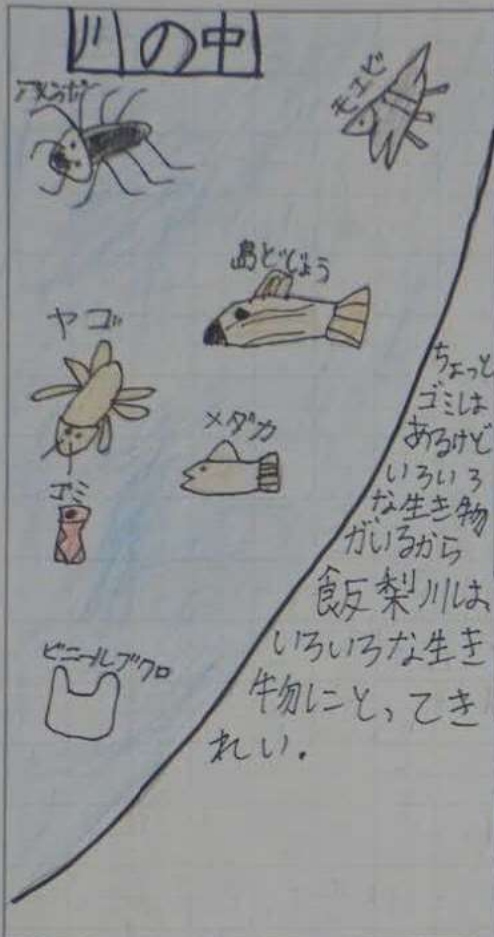 川の中
アメンボ
モエビ
島どじょう
ヤゴ
メダカ
ゴミ
ビニールブクロ
ちょっと
ゴミは
あるけど
いろいろ
な生き物
がいるから
飯梨川は、
いろいろな生き
物にとってき
れい.